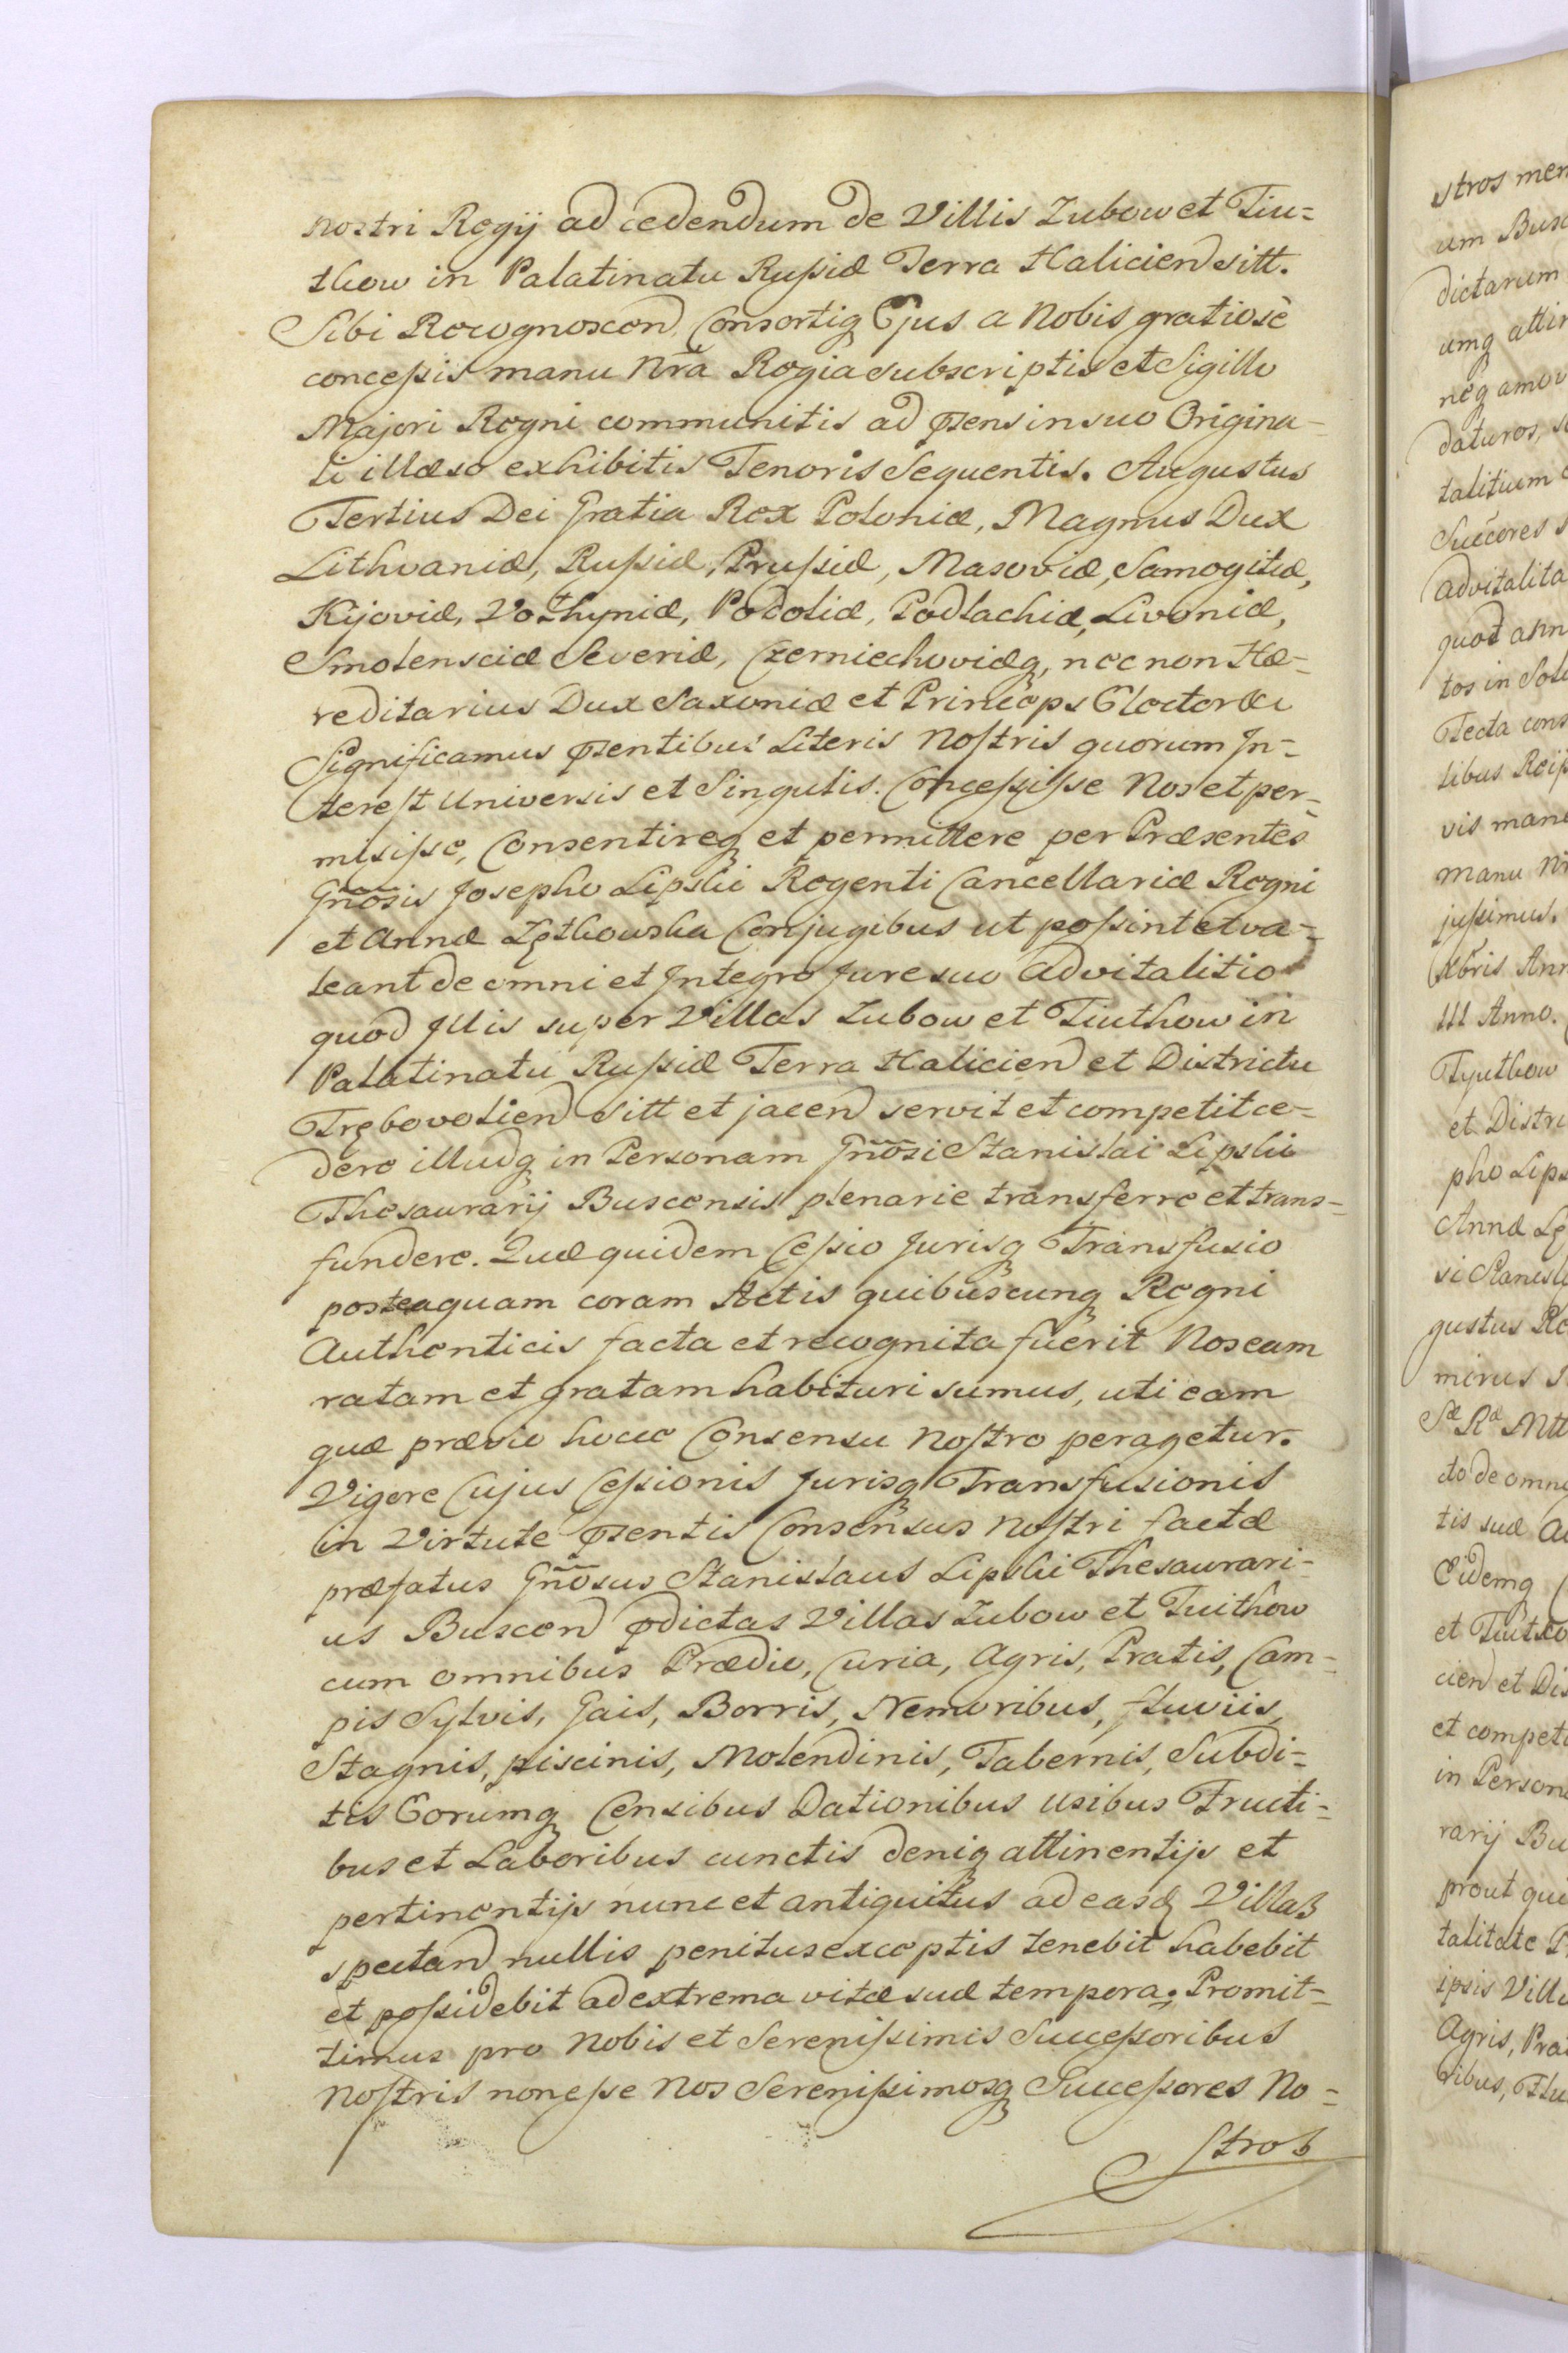 nostri Regij ad cedendum de Villis Zubow et Tiu=
tkow in Palatinatu Russiæ Terra Halicien sitt.
Sibi Recognoscen Consortiq Ejus a Nobis gratiosè
concessis manu Nrã Regia subscriptis et Sigillo
Majori Regni communitis ad præsens in suo Origina=
li illæso exhibitis Tenoris Sequentis. Augustus
Tertius Dei Gratia Rex Poloniæ, Magnus Dux
Lithvaniæ, Russiæ, Prussiæ, Masoviæ, Samogitiæ,
Kijoviæ, Volhyniæ, Podoliæ, Podlachiæ, Livoniæ,
Smolensciæ Severiæ, Czerniechoviæq, nec non Hæ=
reditarius Dux Saxoniæ et Princeps Elector &c
Significamus præsentibus Literis Nostris quorum In=
terest Universis et Singulis. Concessisse Nos et per=
misisse, Consentireq et permittere per Præsentes
Gnõsis Josepho Lipski Regenti Cancellariæ Regni
et Annæ Lętkowska Conjugibus ut possint et va=
leant de omni et Integro Jure suo Advitalitio
quod Illis super Villas Zubow et Tiutkow in
Palatinatu Russiæ Terra Halicien et Districtu
Trębovolien sitt et jacen servit et competit ce=
dere illudq in Personam Gnõsi Stanislai Lipski
Thesaurarij Buscensis plenarie transferre et trans=
fundere. Quæ quidem Cessio Jurisq Transfusio
posteaquam coram Actis quibuscunq Regni
Authenticis facta et recognita fuerit Nos eam
ratam et gratam habituri sumus, uti eam
quæ prævio hocce Consensu Nostro peragetur.
Vigore Cujus Cessionis Jurisq Transfusionis
in Virtute præsentis Consensus Nostri factæ
præfatus Gnõsus Stanislaus Lipski Thesaurari=
us Buscen prædictas Villas Zubow et Tuitkow
cum omnibus Prædio, Curia, Agris, Pratis, Cam=
pis Sylvis, Gais, Borris, Nemoribus, fluviis,
Stagnis, piscinis, Molendinis, Tabernis, Subdi=
tis Eorumq Censibus Dationibus Usibus Fructi=
bus et Laboribus cunctis deniq attinentijs et
pertinentijs nunc et antiquitus ad easq Villas
spectan nullis penitus exceptis tenebit habebit
et possidebit ad extrema vitæ suæ tempora. Promit=
timus pro Nobis et Serenissimis Successoribus
Nostris non esse Nos Serenissimosq Successores No=
stros
stros
um Busc
dictarum
umq attin
neq amov
daturos, s
talitium
Succores
advitalita
quod
tos in
Tecta cons
libus
vis
manu
jussimus.
Xbris Ann
III Anno.
Tyutkow
et Distri
pho Lips
Annæ Lę
si Stanisl
gustus Re
mirus
Sæ Ræ Mtt
to de omni
tis suæ A
Eidemq
et Tiutko
cien et Dis
et competi
in Persona
rarij Bu
prout qui
talitate
ipsis Vill
Agris, Pra
ribus, Flu